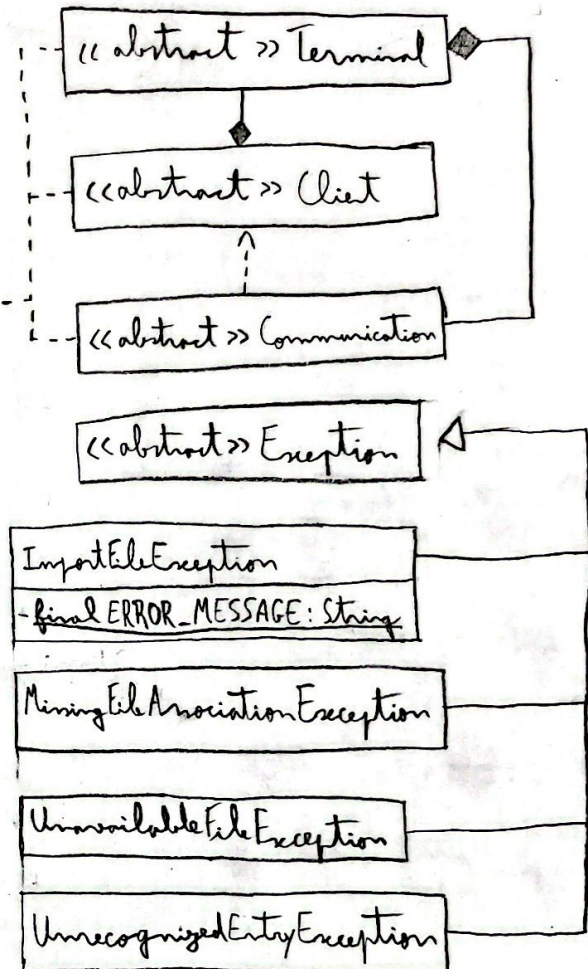 << abstract >> Terminal
<<abstract>> Client
<<abstract>> Communication
<<abstract>> Exception
ImportFileException
- final ERROR_MESSAGE: String
MissingFileAssociationException
UnavailableFileException
UnrecognizedEntryException